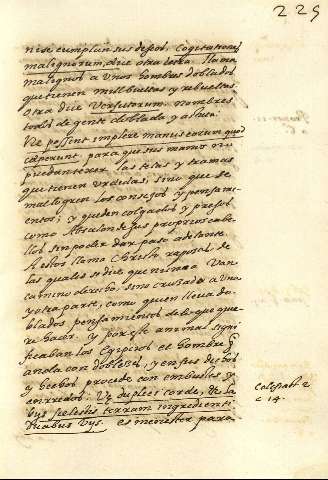 225
ni se cumplan sus deseos, cogitationes
malignorum, dice otra letra. Llama
malignos a unos hombres doblados
que tienen mil bueltas y rebueltas
otra dice Versutorum. nombres
todos de gente doblada y astuta.
Ne possent implere manus eorum quod
cæperunt para que sus manos no
puedan texer las telas y tramas
que tienen urdidas, sino que se
mal logren los consejos y pensami
entos; y queden colgados y presos
como Absalon de sus proprios cabe
llos sin poder dar paso adelante.
A estos llamo Christo raposas, de
las quales se dice que nunca van
camino derecho, sino cruzando a una
y otra parte, como quien lleva do
blados pensamientos de lo que quie
re hacer. y por este animal signi
ficaban los Egipcios el hombre q̃
anda con doblez, y en sus dichos
y hechos procede con embustes y
enrredos. Væ duplici corde, & la
bys scelestis terram ingredienti
duabus vys. es menester para
Eclesiast. 2
c 14.